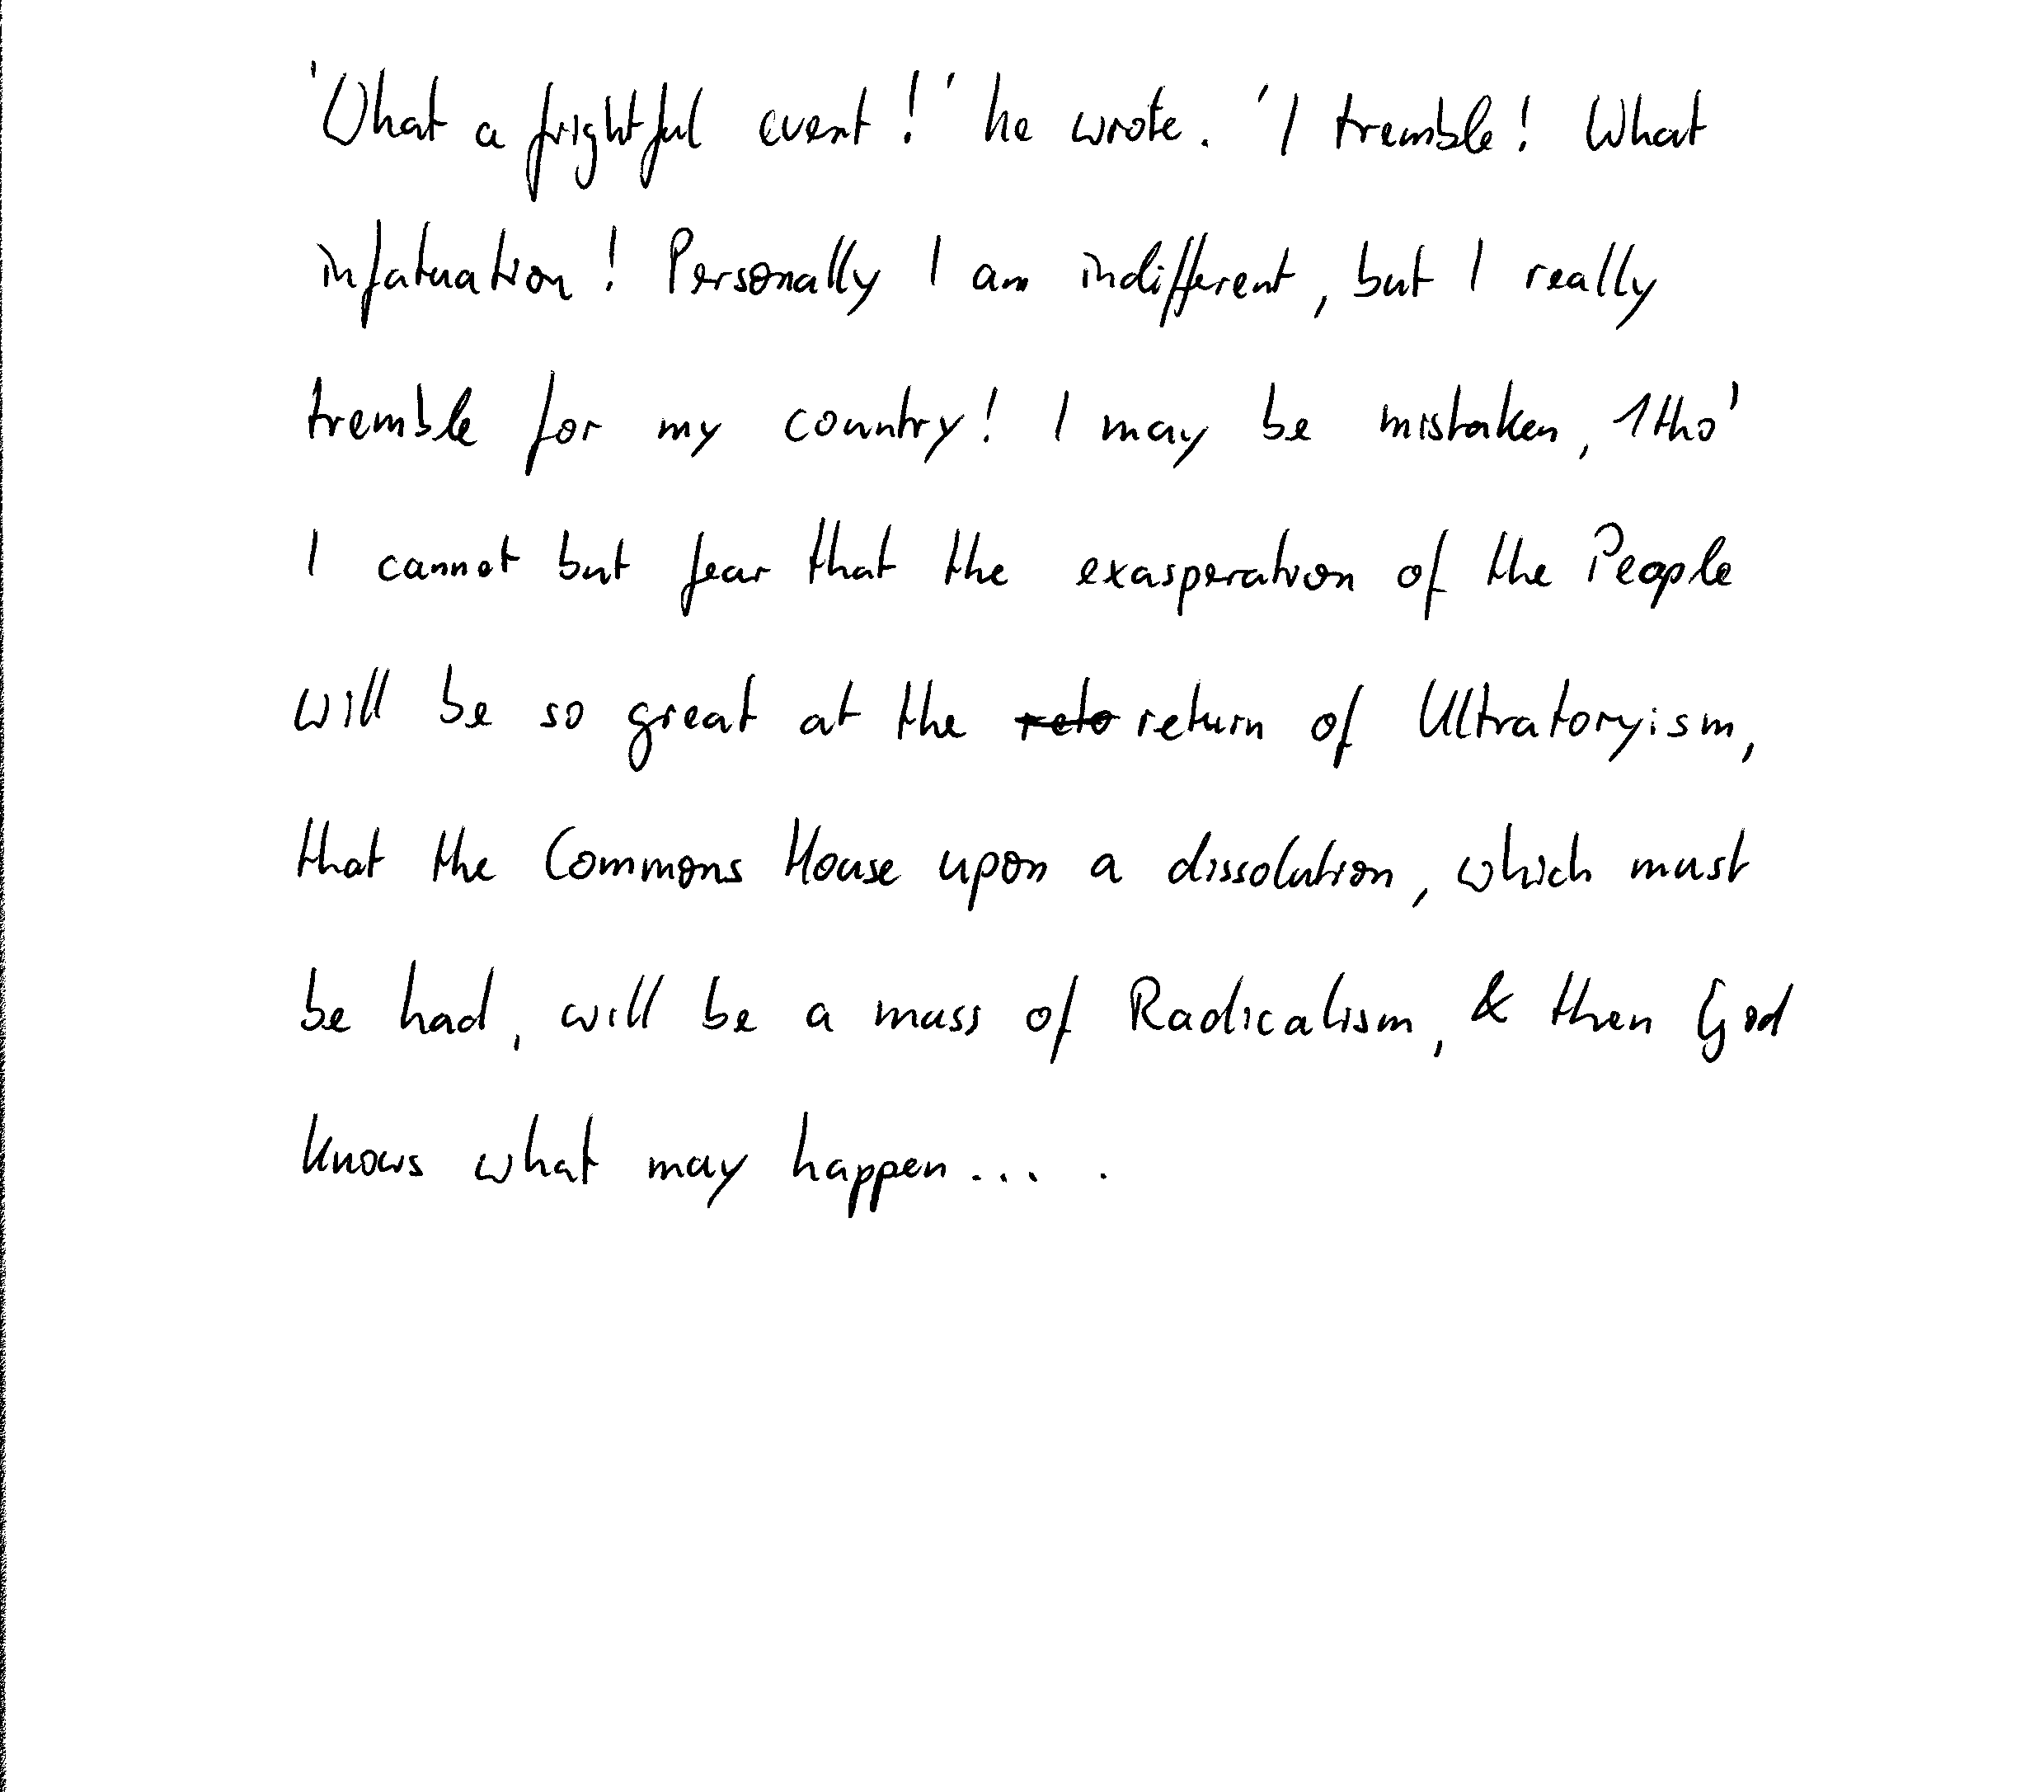 'What a frightful event!' he wrote. 'I tremble! What
infatuation! Personally I am indifferent, but I really
tremble for my country! I may be mistaken, 1tho'
I cannot but fear that the exasperation of the People
will be so great at the reto return of Ultratoryism,
that the Commons House upon a dissolution, which must
be had, will be a mass of Radicalism, & then God
knows what may happen... .